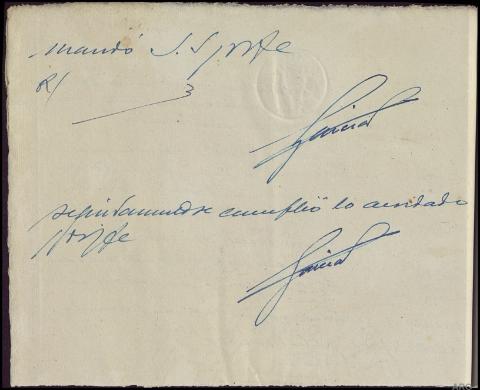 mandó S. S. y doy fe
R/
Garcia
seguidamente se cumplió lo acordado
doy fe
Garcia